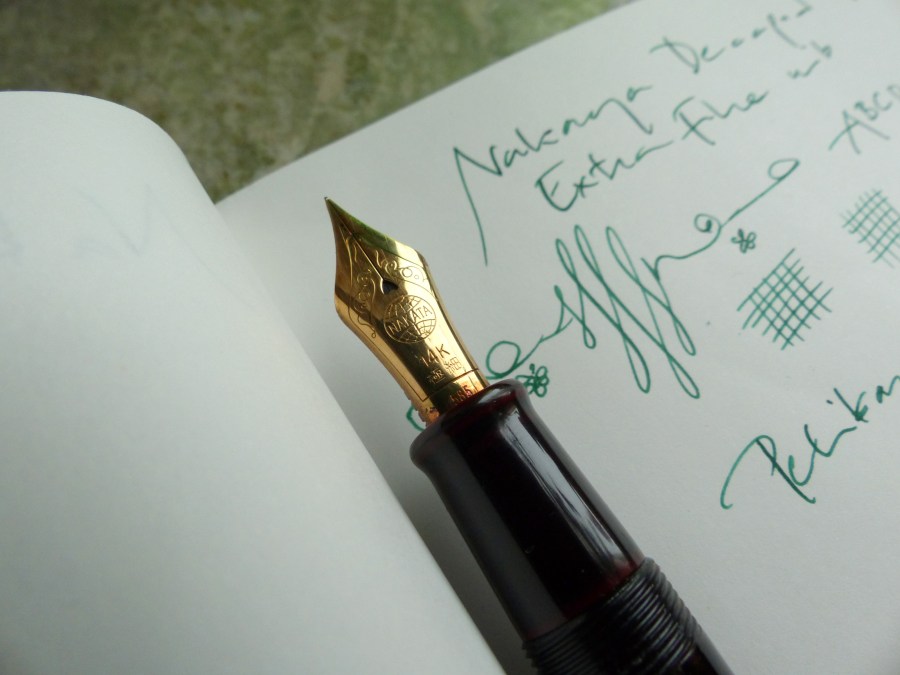 Nakaya Decapod
Extra Fine nib
ABCD
Pelikan
NAKAYA
14K
585